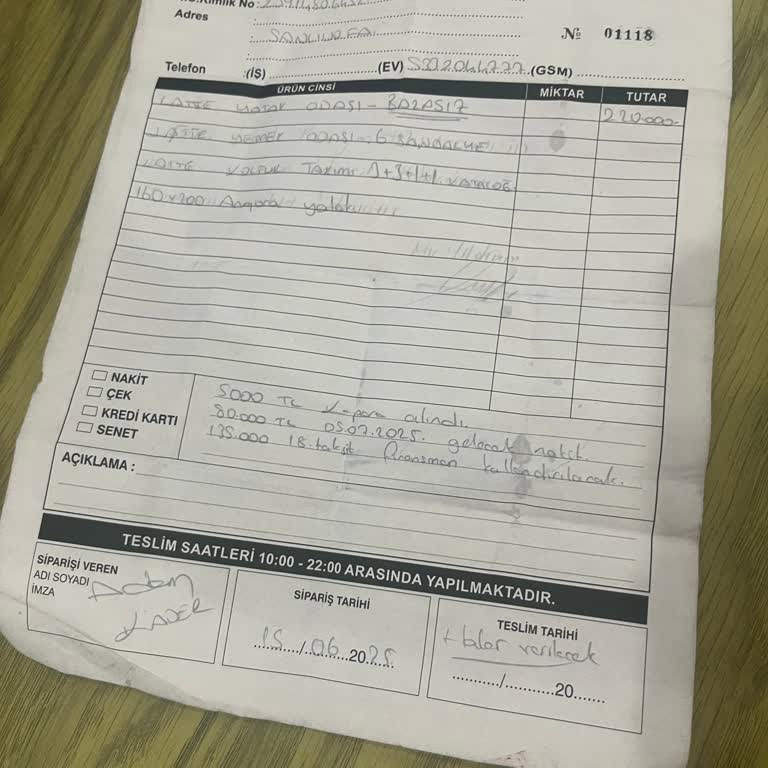 Kimlik No:
Adres
ŞANLIURFA
№ 01118
Telefon (İŞ) (EV) (GSM)
ÜRÜN CİNSİ MİKTAR TUTAR
LATTE YATAK ODASI - BAZASIZ 220.000
LATTE YEMEK ODASI - 6 SANDALYE
LATTE KOLTUK TAKIMI 3+1+1
160x200 Angora yatak
NAKİT
ÇEK
KREDİ KARTI
SENET
5000 TL K-para alındı.
80.000 TL 05.07.2025. gelecek nakit.
135.000 18 taksit finansman kullandırılacak.
AÇIKLAMA :
TESLİM SAATLERİ 10:00 - 22:00 ARASINDA YAPILMAKTADIR.
SİPARİŞİ VEREN
ADI SOYADI
İMZA
Adem
SİPARİŞ TARİHİ
15/06.2025.
TESLİM TARİHİ
verilecek
....../.........20......